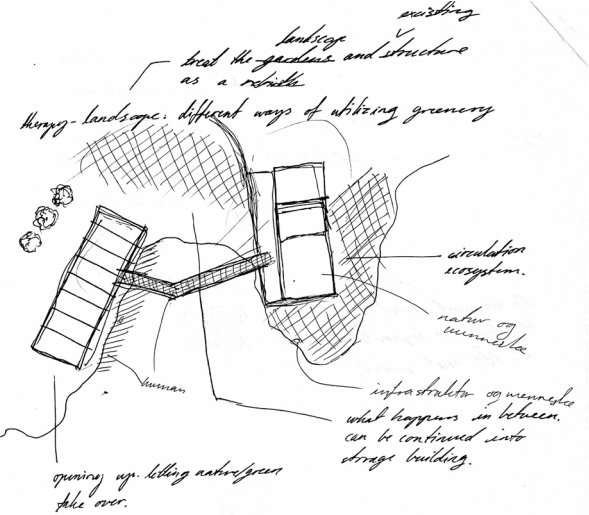 existing
landscape
treat the gardens and structure
as a
therapy-landscape: different ways of utilizing greenery
circulation
ecosystem.
natur og
menneske
human
infrastruktur og menneske
what happens in between.
can be continued into
storage building.
opening up. letting nature/green
take over.